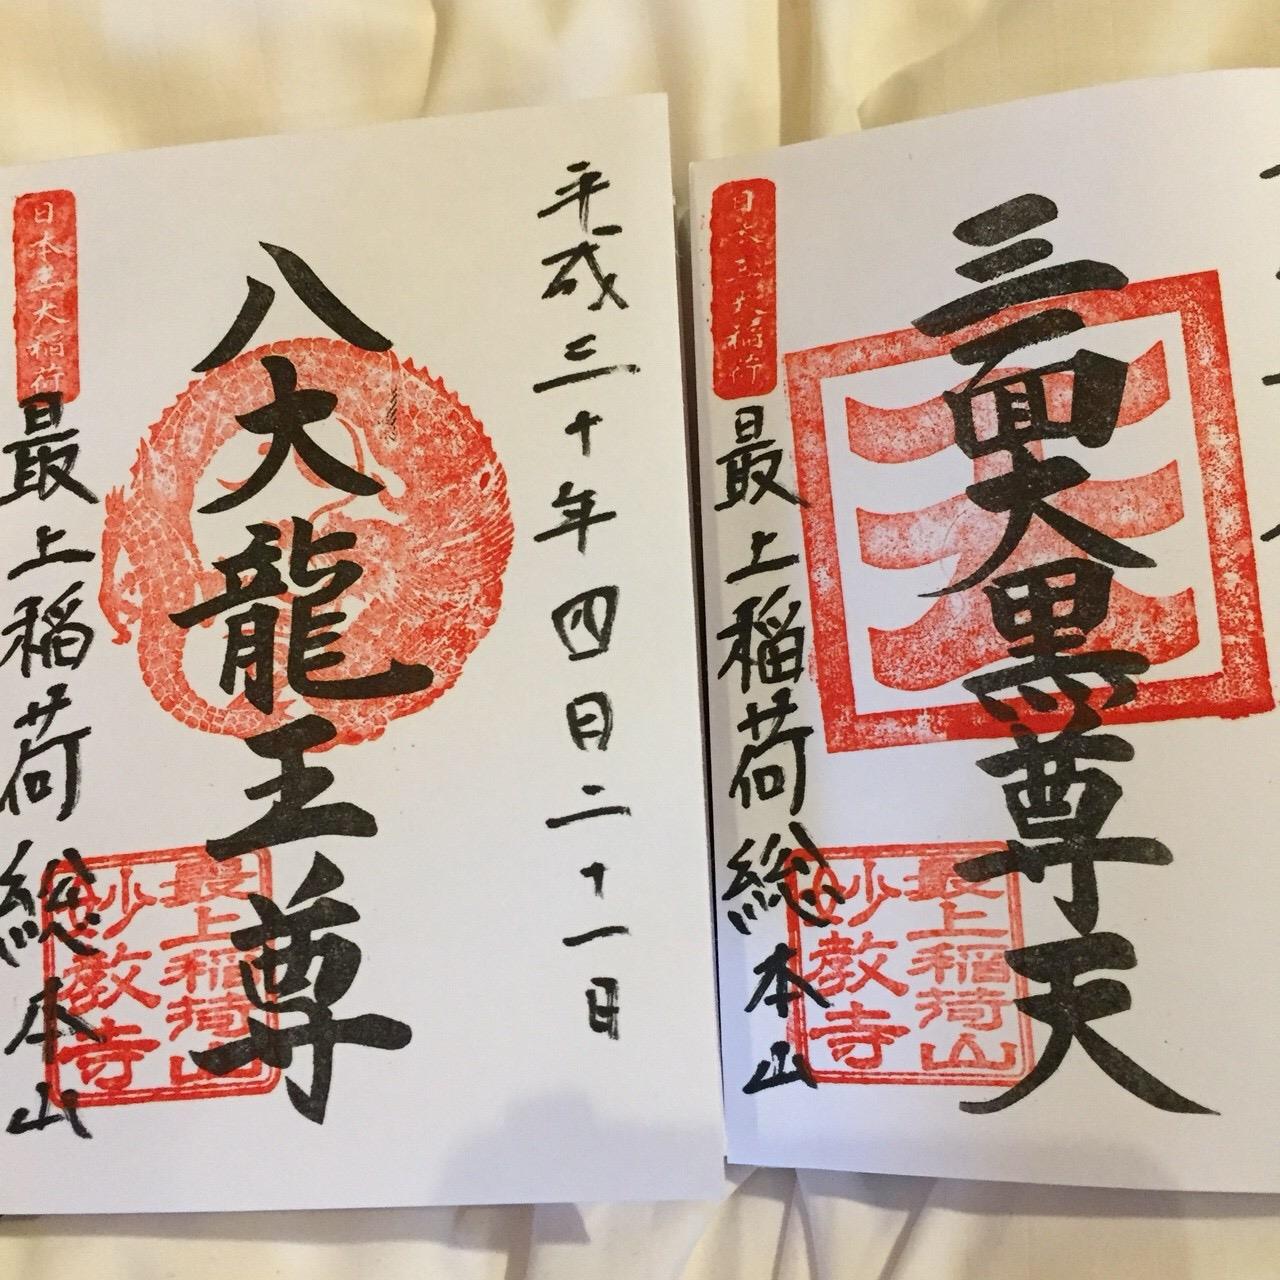 平成三十年四月二十一日
八大龍王尊
日本三大稲荷
最上稲荷総本山
最上稲荷山
妙教寺
三面大黒尊天
日本三大稲荷
最上稲荷総本山
最上稲荷山
妙教寺